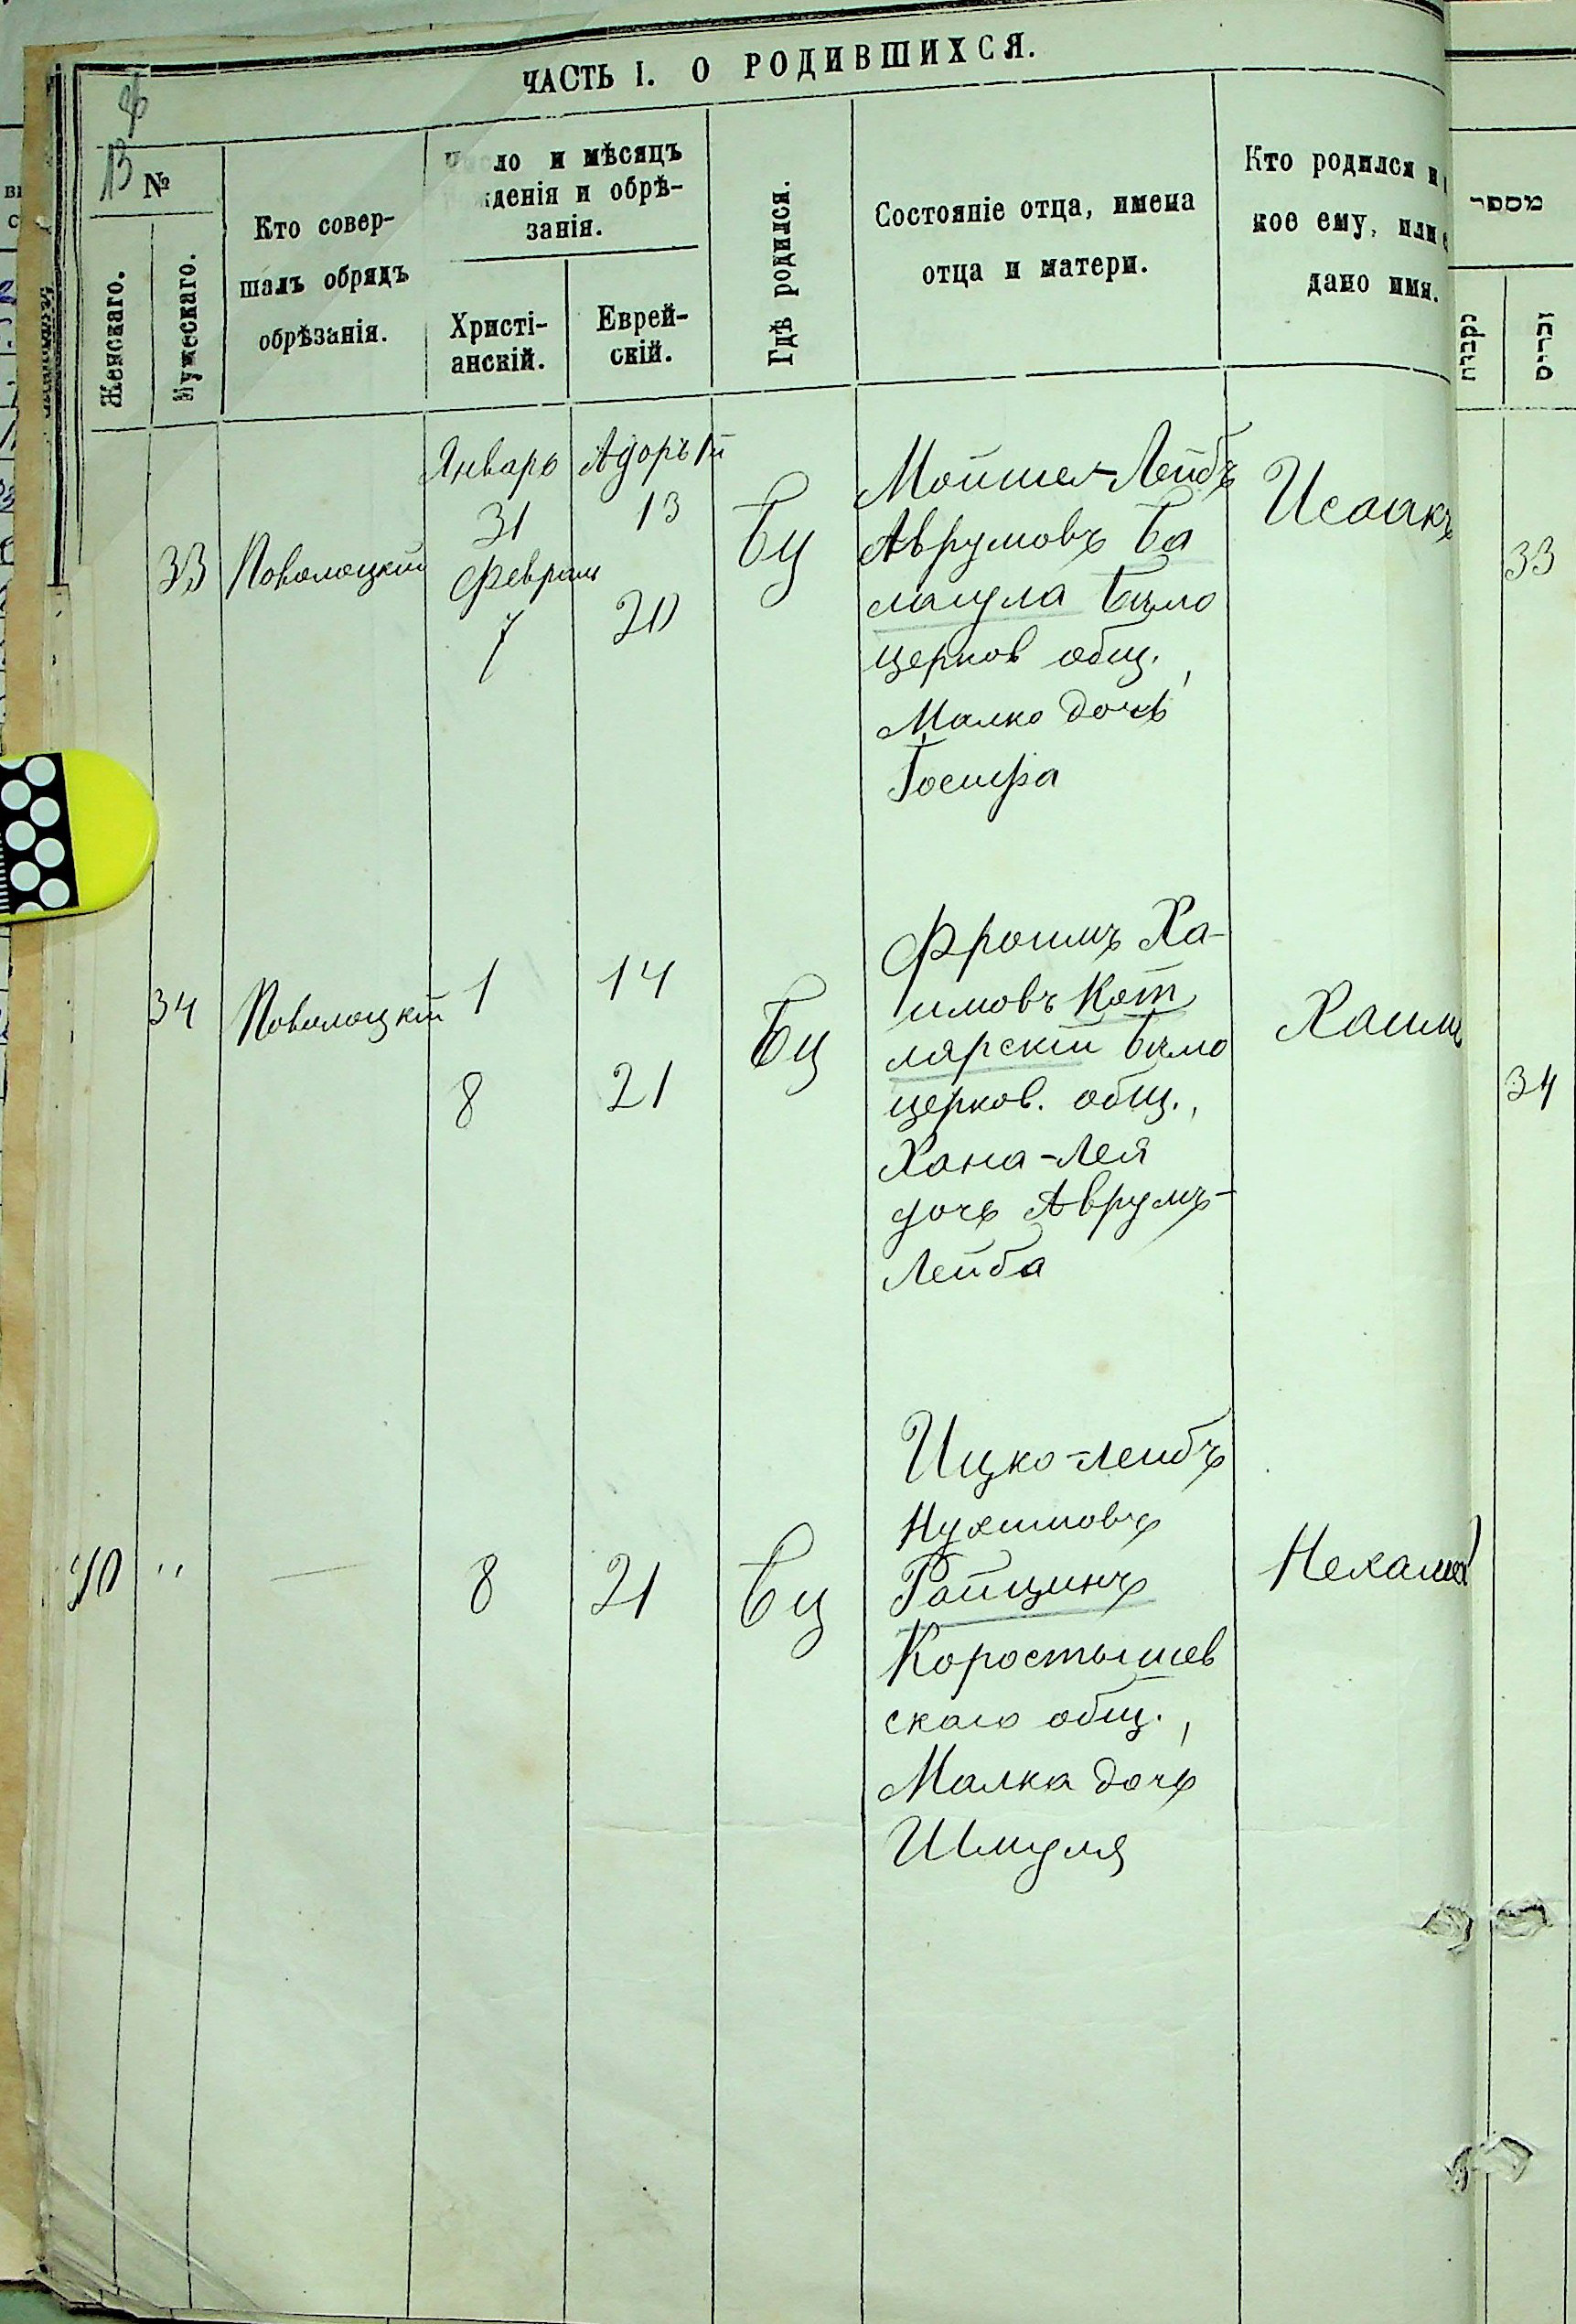 ЧАСТЬ I. О РОДИВШИХСЯ.
13
№
Женскаго.
Мужескаго.
Кто совер-
шалъ обрядъ
обрѣзанія.
ло и мѣсяцъ
денія и обрѣ-
занія.
Христі-
анскій.
Еврей-
скій.
Гдѣ родился.
Состояніе отца, имена
отца и матери.
Кто родился и
кое ему, или
дано имя.
מספר
נקבות
זכרים
33
Поволоцкій
Январь
31
Февраль
7
Адоръ 1й
13
20
БЦ
Мойше-Лейбъ
Аврумовъ Ба
лагула Бѣло
церков общ.,
Малка дочь
Іосифа
Исаакъ
33
34
Поволоцкій
1
8
14
21
БЦ
Фроимъ Ха-
имовъ Кот
лярскій Бѣло
церков. общ.,
Хана-Лея
дочь Аврумъ-
Лейба
Хаимъ
34
20
"
—
8
21
БЦ
Ицко-Лейбъ
Нухимовъ
Райцинъ
Коростышев
скаго общ.,
Малка дочь
Шмуля
Нехама